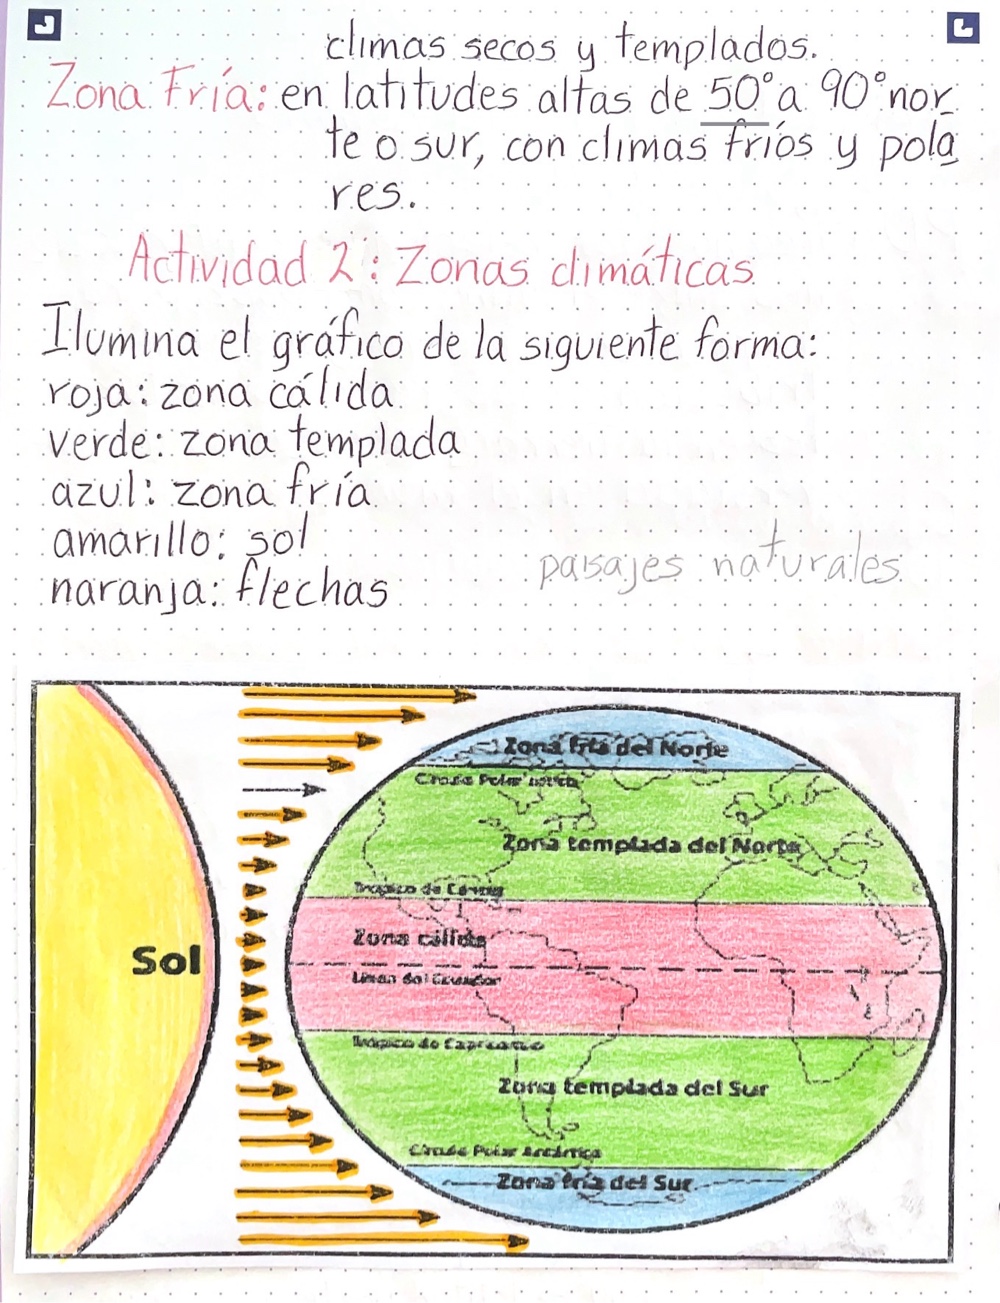 climas secos y templados.
Zona Fría: en latitudes altas de 50° a 90° nor
te o sur, con climas fríos y pola
res.
Actividad 2: Zonas climáticas
Ilumina el gráfico de la siguiente forma:
roja: zona cálida
verde: zona templada
azul: zona fría
amarillo: sol
naranja: flechas
paisajes naturales
Zona fría del Norte
Círculo Polar
Zona templada del Norte
Trópico de Cáncer
Sol
Zona cálida
Línea del Ecuador
Trópico de Capricornio
Zona templada del Sur
Círculo Polar Antártica
Zona fría del Sur